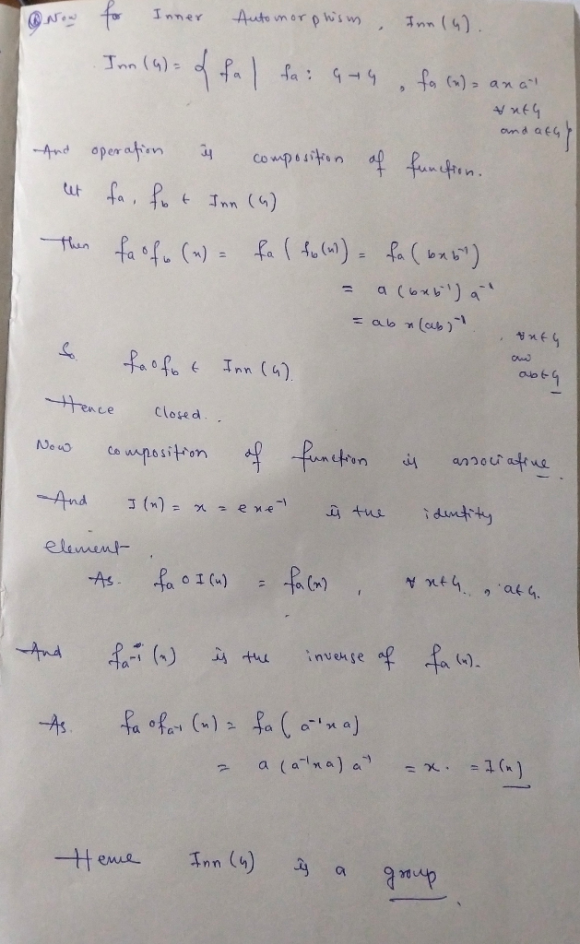 Now for Inner Automorphism, Inn(G).
Inn(G) = { fa | fa: G→G, fa(x) = axa⁻¹
∀ x∈G
and a∈G}
And operation is composition of function.
let fa, fb ∈ Inn(G)
Then fa∘fb(x) = fa(fb(x)) = fa(bxb⁻¹)
= a(bxb⁻¹)a⁻¹
= abx(ab)⁻¹. ∀x∈G
and
ab∈G
So fa∘fb ∈ Inn(G).
Hence closed.
Now composition of function is associative.
And I(x) = x = exe⁻¹ is the identity
element.
As. fa∘I(x) = fa(x), ∀ x∈G, a∈G.
And fa⁻¹(x) is the inverse of fa(x).
As. fa∘fa⁻¹(x) = fa(a⁻¹xa)
= a(a⁻¹xa)a⁻¹ = x. = I(x)
Hence Inn(G) is a group.